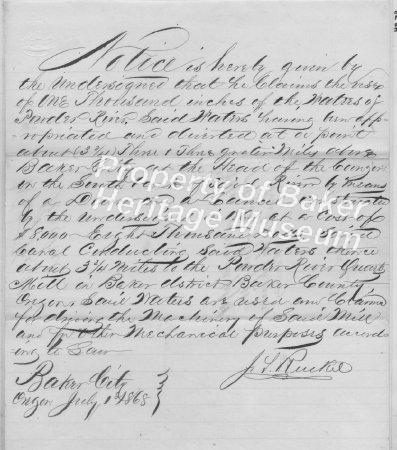 Notice is hereby given by
the undersigned that he Claims the use
of One Thousand inches of the Waters of
Powder River Said Waters having been app-
ropriated and diverted at a point
about (3 3/4) Three & Three quarter Miles above
Baker City at the Head of the Canyon
on the South of River by means
of a Canal
by the undersigned at a Cost of
$8,000 Eight Thousand Said
Canal Conducting Said Waters thence
about 3 3/4 Miles to the Powder River Quartz
Mill in Baker district Baker County
Oregon, Said Waters are used and Claimed
for driving the Machinery of Said Mill
and for other Mechanical purposes accord
ing to Law
Baker City
Oregon July 1st 1868
J. S. Ruckel
Property of Baker
Heritage Museum